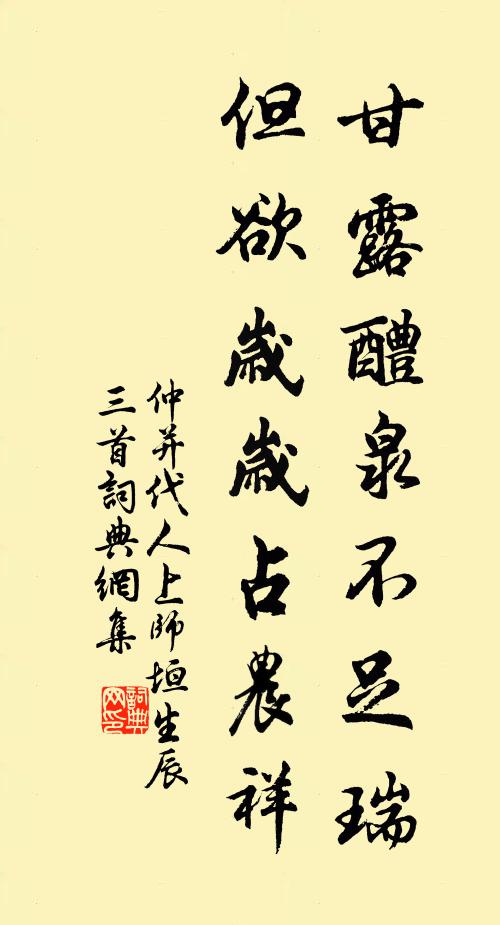 甘露醴泉不足瑞
但欲歲歲占農祥
仲并代人上師垣生辰
三首詞典網集
詞典网印